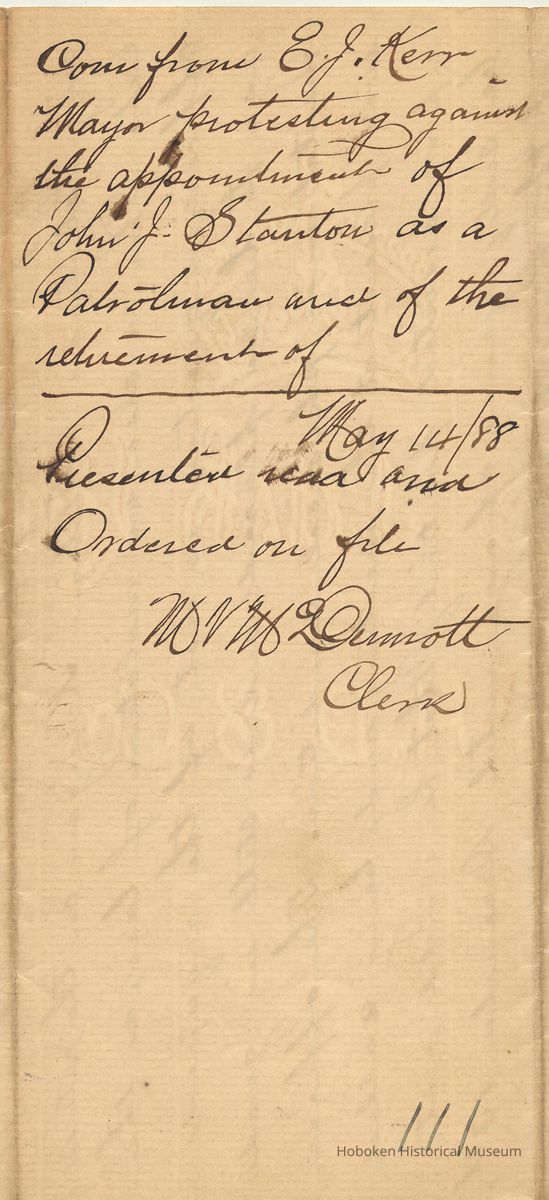 Com from E. J. Kerr
Mayor protesting against
the appointment of
John J. Stanton as a
Patrolman and of the
retirement of
May 14/88
Presented read and
Ordered on file
McDermott
Clerk
111
Hoboken Historical Museum